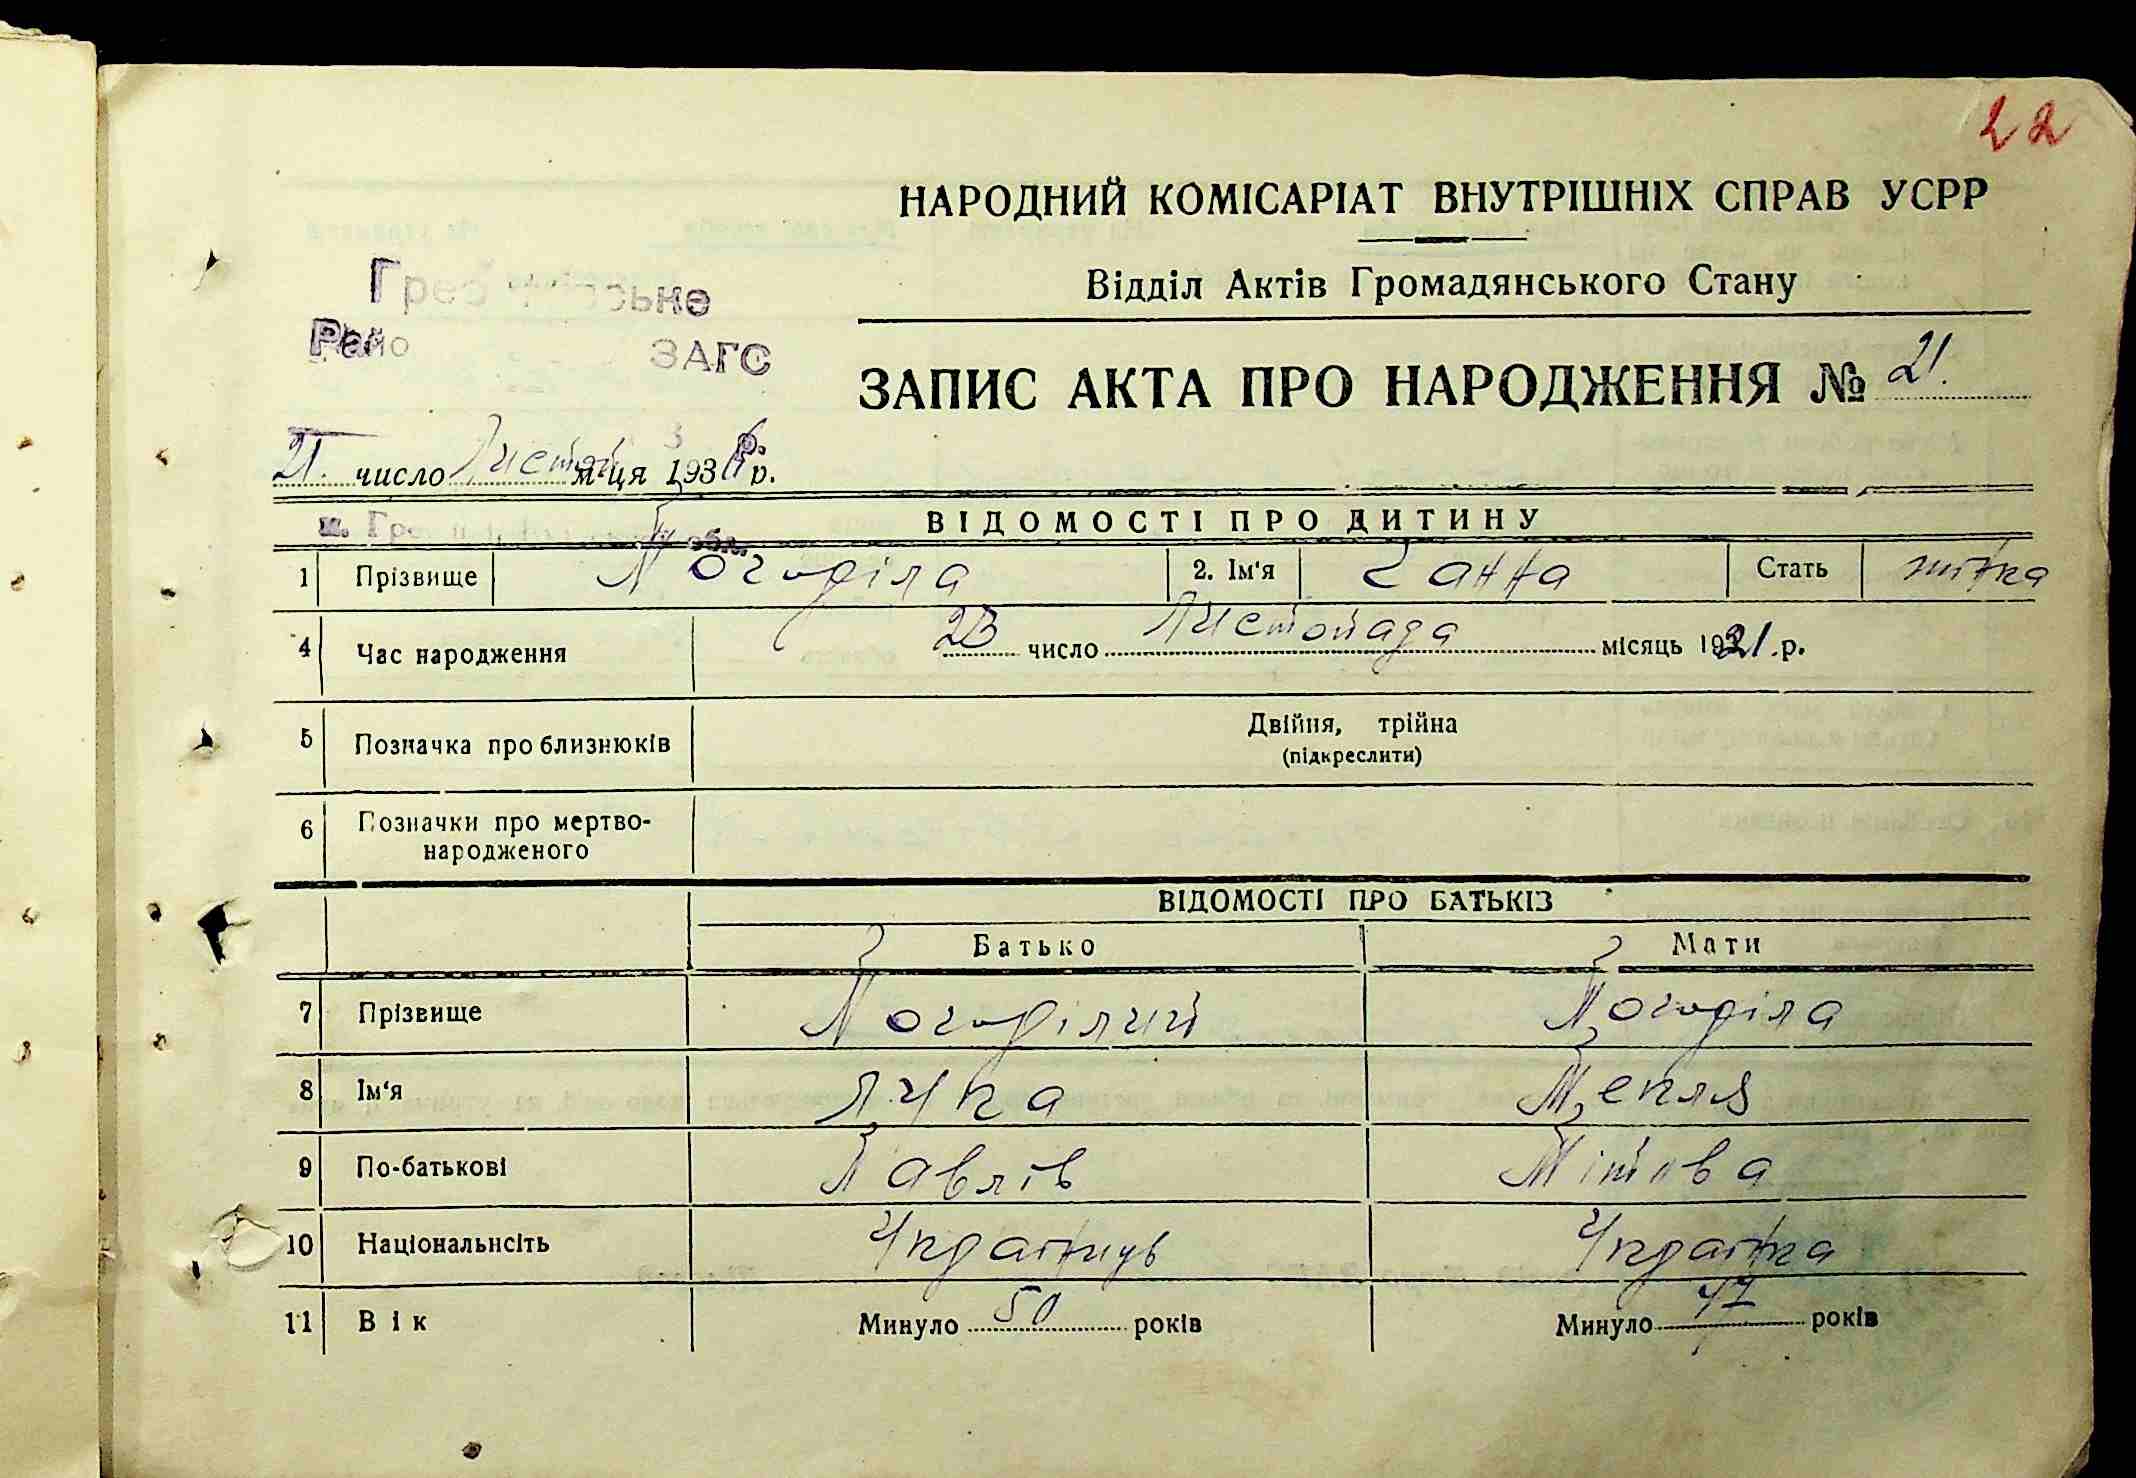 22
НАРОДНИЙ КОМІСАРІАТ ВНУТРІШНІХ СПРАВ УСРР
Відділ Актів Громадянського Стану
ЗАГС
ЗАПИС АКТА ПРО НАРОДЖЕННЯ № 21.
21. число Листоп м-ця 193 р.
ВІДОМОСТІ ПРО ДИТИНУ
1 Прізвище Погоріла 2. Ім'я Ганна Стать жінка
4 Час народження 23 число Листопада місяць 1921.р.
5 Позначка про близнюків Двійня, трійна
(підкреслити)
6 Позначки про мертво-
народженого
ВІДОМОСТІ ПРО БАТЬКІЗ
Батько Мати
7 Прізвище Погорілий Погоріла
8 Ім'я Лука Текля
9 По-батькові Павлів Тітова
10 Національнсіть Українць Українка
11 Вік Минуло 50 років Минуло 47 років